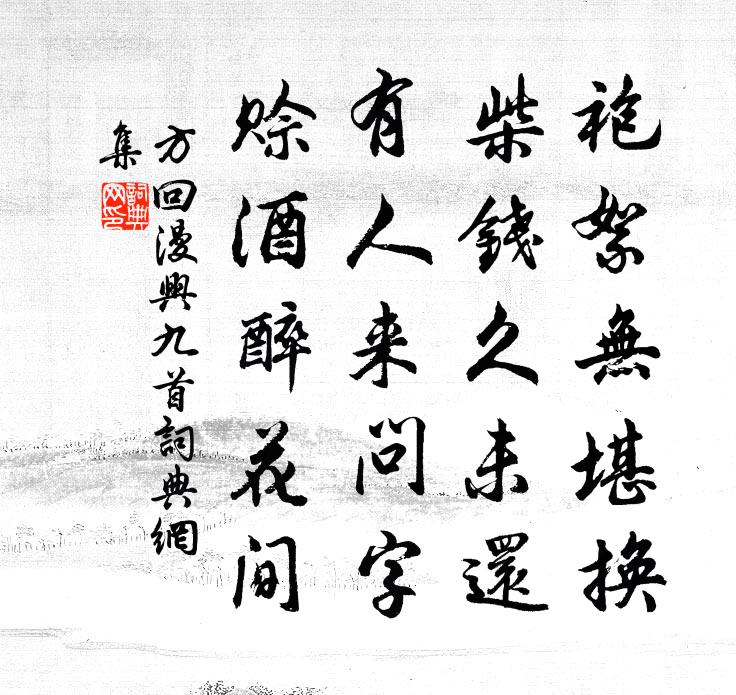 袍絮無堪換
柴錢久未還
有人来問字
賒酒醉花間
方回漫興九首詞典網
集
詞典网印